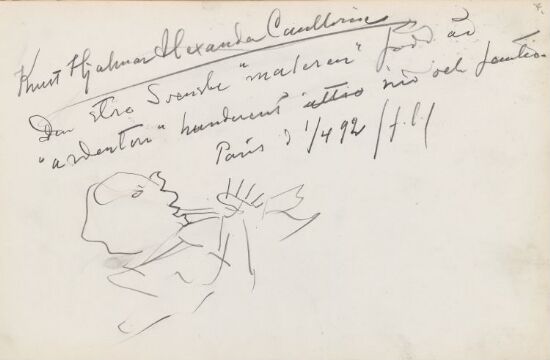 Knut Hjalmar Alexander Caullorin
Den stra Svenske "malaren" född år
"aderton" hunderent åttio nio och femtio
Paris d 1/4 92 / f. l. /